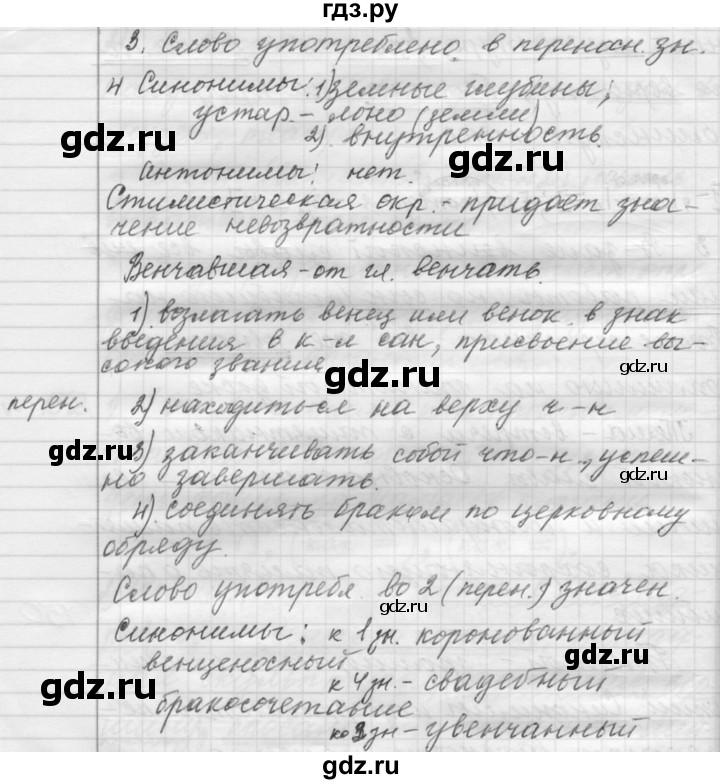 гдз.ру
3. Слово употреблено в перенос. зн.
4 Синонимы: 1) земные глубины;
устар. - лоно (земли)
gdz.ru
2) внутренность.
gdz.ru
Антонимы: нет.
Стилистическая окр. - придаёт зна-
gdz.ru
чение невозвратности
Венчавшая - от гл. венчать.
1) возлагать венец или венок в знак
введения в к-л сан, присвоение вы-
сокого звания
gdz.ru
gdz.ru
перен. 2) находиться на верху ч-н
gdz.ru
3) заканчивать собой что-н., успеш-
но завершать.
gdz.ru
4) соединять браком по церковному
обряду.
Слово употребл. во 2 (перен.) значен.
gdz.ru
Синонимы: к 1 зн. коронованный
венценосный
gdz.ru
к 4 зн. - свадебный
gdz.ru
бракосочетавшие
ко 3 зн - увенчанный
gdz.ru